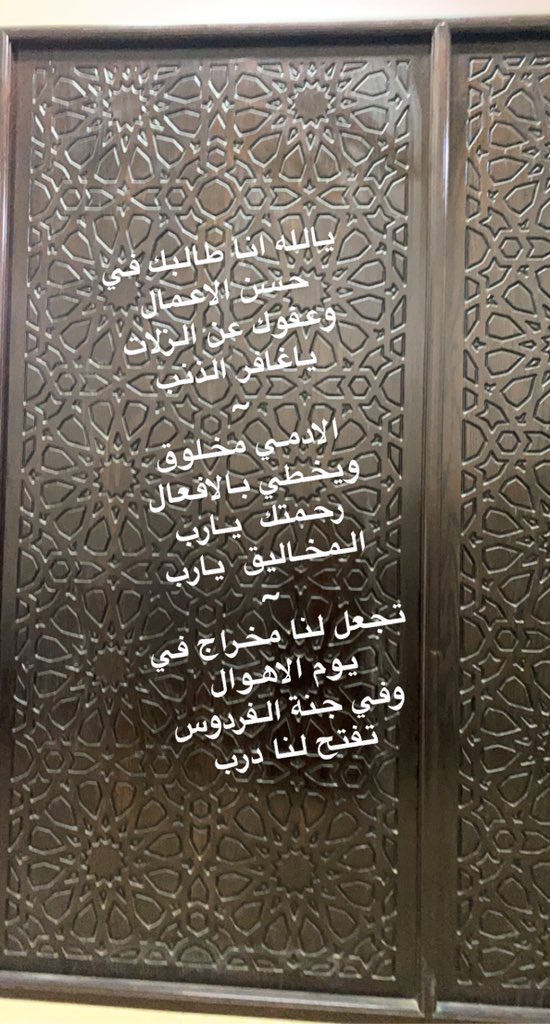 يالله انا طالبك في
حسن الاعمال
وعفوك عن الزلات
ياغافر الذنب
~
الادمي مخلوق
ويخطي بالافعال
رحمتك يارب
المخاليق يارب
~
تجعل لنا مخراج في
يوم الاهوال
وفي جنة الفردوس
تفتح لنا درب